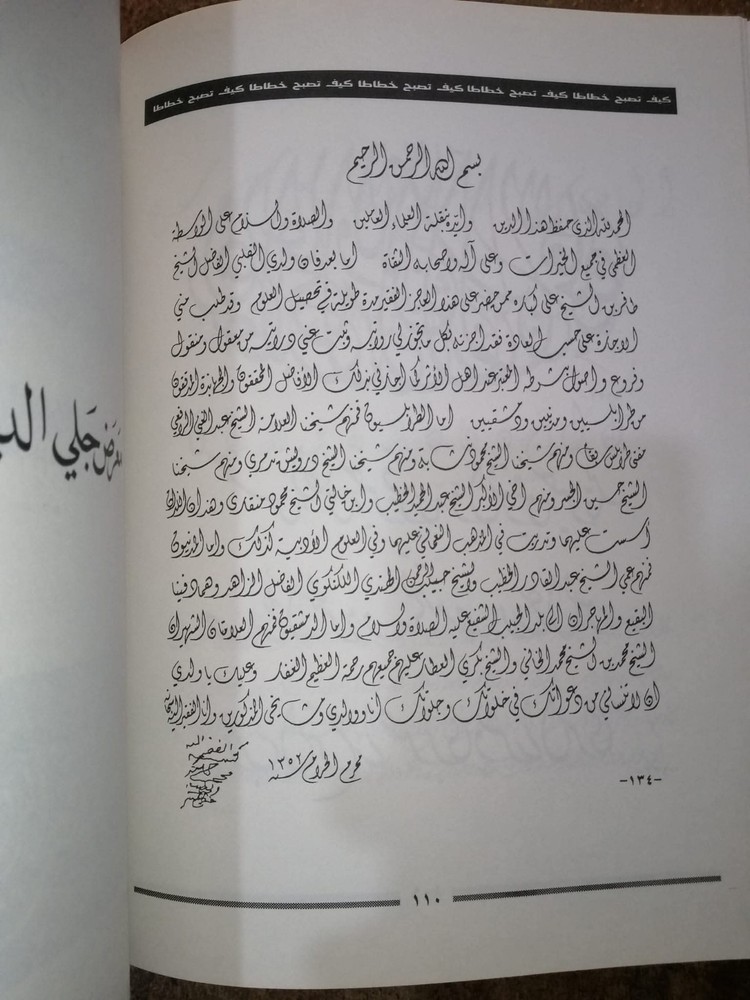 كيف تصبح خطاطا كيف تصبح خطاطا كيف تصبح خطاطا كيف تصبح خطاطا كيف تصبح خطاطا
بسم الله الرحمن الرحيم
الحمد لله الذي حفظ هذا الدين وأيده بنقلة العلماء العاملين والصلاة والسلام على الواسطة
العظمى في جميع الخيرات وعلى آله وأصحابه الثقاة اما بعد فان ولدي القلبي الفاضل الشيخ
بن الشيخ علي كباره ممن حضر على هذا العاجز الفقير مدة طويلة في تحصيل العلوم وقد طلب مني
الاجازة على حسب العادة فقد اجزته بكل ما تجوز لي روايته وثبت عني درايته من معقول ومنقول
وفروع واصول بشرطه المعتبر عند اهل الأثر كما اجازني بذلك الأفاضل المحققون والجهابذة المدققون
من طرابلسيين ومدنيين ودمشقيين اما الطرابلسيون فمنهم شيخنا العلامة الشيخ عبد الغني الرافعي
مفتي طرابلس ومنهم شيخنا الشيخ محمود نشابة ومنهم شيخنا الشيخ درويش تدمري ومنهم شيخنا
الشيخ حسين الجسر ومنهم اخي الأكبر الشيخ عبد الحميد الخطيب وابن خالتي الشيخ محمود منقاري وهذان اللذان
أسست عليهما وتدربت في المذهب النعماني عليهما وفي العلوم الأدبية كذلك واما المدنيون
فمنهم عمي الشيخ عبد القادر الخطيب والشيخ حبيب الرحمن الهندي اللكنكوي الفاضل الزاهد وهما دفينا
البقيع والمهاجران الى بلد الحبيب الشفيع عليه الصلاة والسلام واما الدمشقيون فمنهم العلامتان الشهيران
الشيخ محمد بن الشيخ محمد الخاني والشيخ بكري العطار عليهم جميعهم رحمة العظيم الغفار وعليك يا ولدي
ان لا تنساني من دعواتك في خلواتك وجلواتك أنا ووالدي ومشايخي المذكورين وأنا الفقير اليه تعالى
محرم الحرام سنه ١٣٥٢
-١٣٤-
١١٠